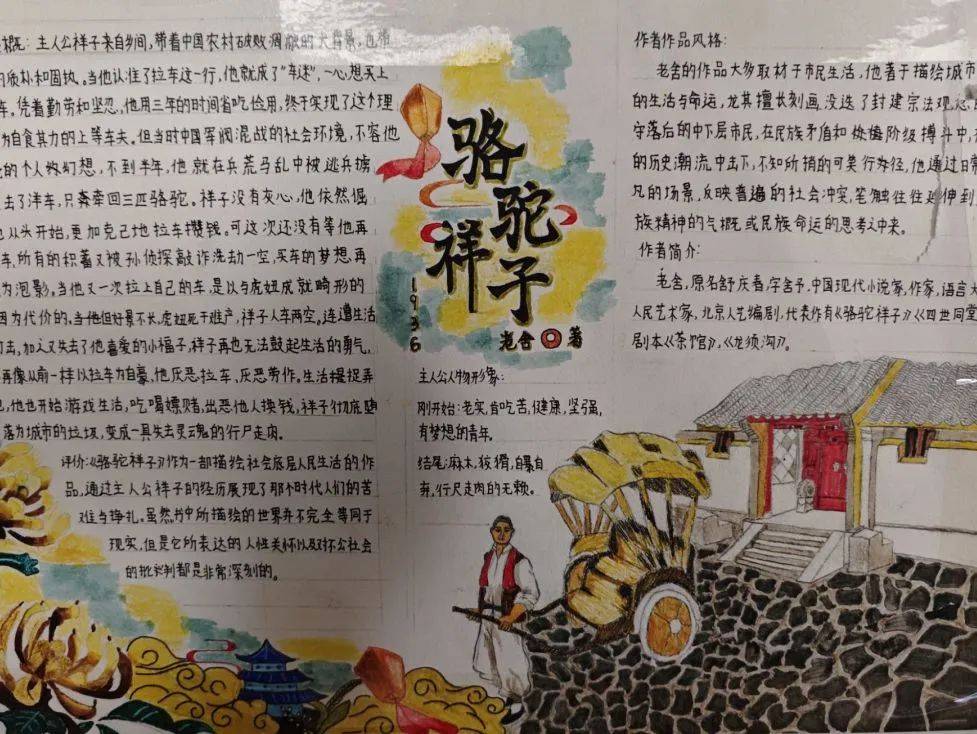 概：主人公祥子来自乡间，带着中国农村破败凋敝的大背景，也带
的质朴和固执。当他认准了拉车这一行，他就成了“车迷”，一心想买上
车。凭着勤劳和坚忍，他用三年的时间省吃俭用，终于实现了这个理
为自食其力的上等车夫。但当时中国军阀混战的社会环境，不容他
的个人教幻想，不到半年，他就在兵荒马乱中被逃兵掳
去了洋车，只牵回三匹骆驼。祥子没有灰心，他依然倔
从头开始，更加克己地拉车攒钱。可这次还没有等他再
车，所有的积蓄又被孙侦探敲诈洗劫一空，买车的梦想再
为泡影。当他又一次拉上自己的车，是以与虎妞成就畸形的
因为代价的。当他但好景不长，虎妞死于难产，祥子人车两空。连遭生活
打击，加之又失去了他喜爱的小福子，祥子再也无法鼓起生活的勇气，
再像从前一样以拉车为自豪，他厌恶拉车、厌恶劳作。生活捉弄
他也开始游戏生活，吃喝嫖赌，出恶他人换钱，祥子彻底堕
落为城市的垃圾，变成一具失去灵魂的行尸走肉。
评价：《骆驼祥子》作为一部描绘社会底层人民生活的作
品，通过主人公祥子的经历展现了那个时代人们的苦
难与挣扎。虽然书中所描绘的世界并不完全等同于
现实，但是它所表达的人性关怀以及对不公社会
的批判都是非常深刻的。
骆驼
祥子
1936
老舍 著
主人公人物形象：
刚开始：老实，肯吃苦，健康，坚强，
有梦想的青年。
结尾：麻木，狡猾，自暴自
弃，行尸走肉的无赖。
作者作品风格：
老舍的作品大多取材于市民生活，他善于描绘城市
的生活与命运，尤其擅长刻画没迭了封建宗法观念
守落后的中下层市民，在民族矛盾和阶级搏斗中，
的历史潮流冲击下，不知所措的可笑行为径，他通过日常
凡的场景，反映普遍的社会冲突，笔触往往延伸到
族精神的气概或民族命运的思考之中来。
作者简介：
老舍，原名舒庆春，字舍予。中国现代小说家，作家，语言大
人民艺术家，北京人艺编剧，代表作有《骆驼祥子》《四世同堂
剧本《茶馆》，《龙须沟》。